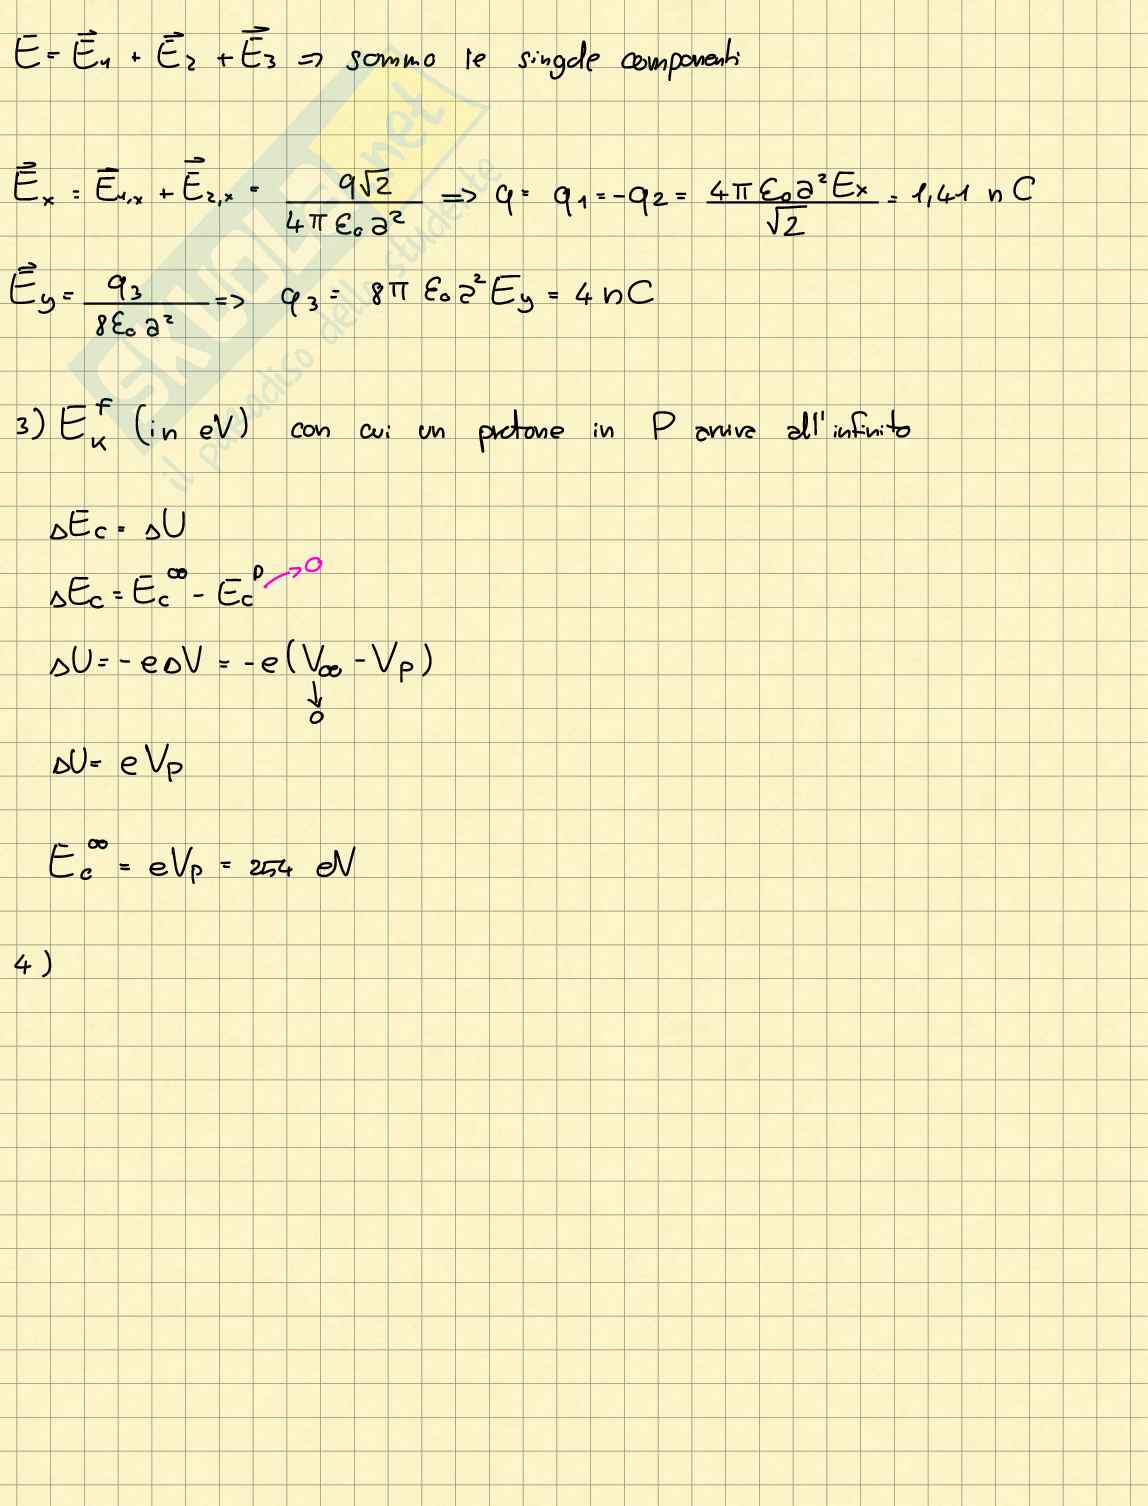 E = E⃗₁ + E⃗₂ + E⃗₃ => sommo le singole componenti
E⃗ₓ = E⃗₁,ₓ + E⃗₂,ₓ = q√2 / 4πε₀a² => q = q₁ = -q₂ = 4πε₀a²Eₓ / √2 = 1,41 nC
E⃗y = q₃ / 8ε₀a² => q₃ = 8π ε₀a²Ey = 4 nC
3) E_k^f (in eV) con cui un protone in P arriva all'infinito
ΔEc = ΔU
ΔEc = Ec^∞ - Ec^P → 0
ΔU = -eΔV = -e(V∞ - Vp)
↓
0
ΔU = eVp
Ec^∞ = eVp = 254 eV
4)
SKUOLA.net
il paradiso dello studente